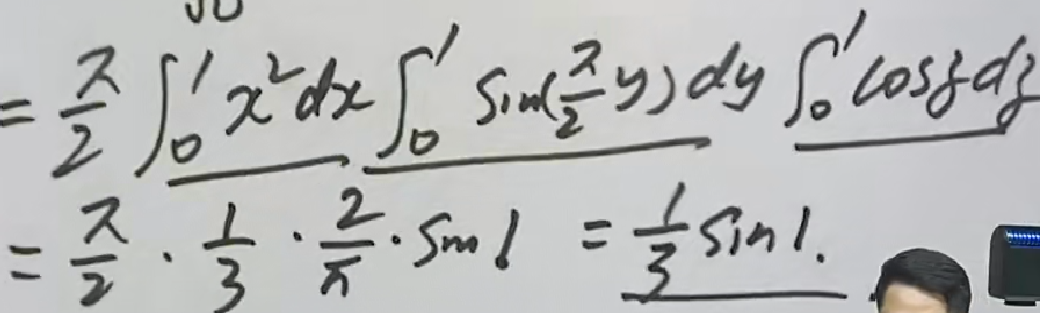 = π/2 ∫₀¹ x² dx ∫₀¹ sin(π/2 y) dy ∫₀¹ cosz dz
= π/2 · 1/3 · 2/π · sin1 = 1/3 sin1.